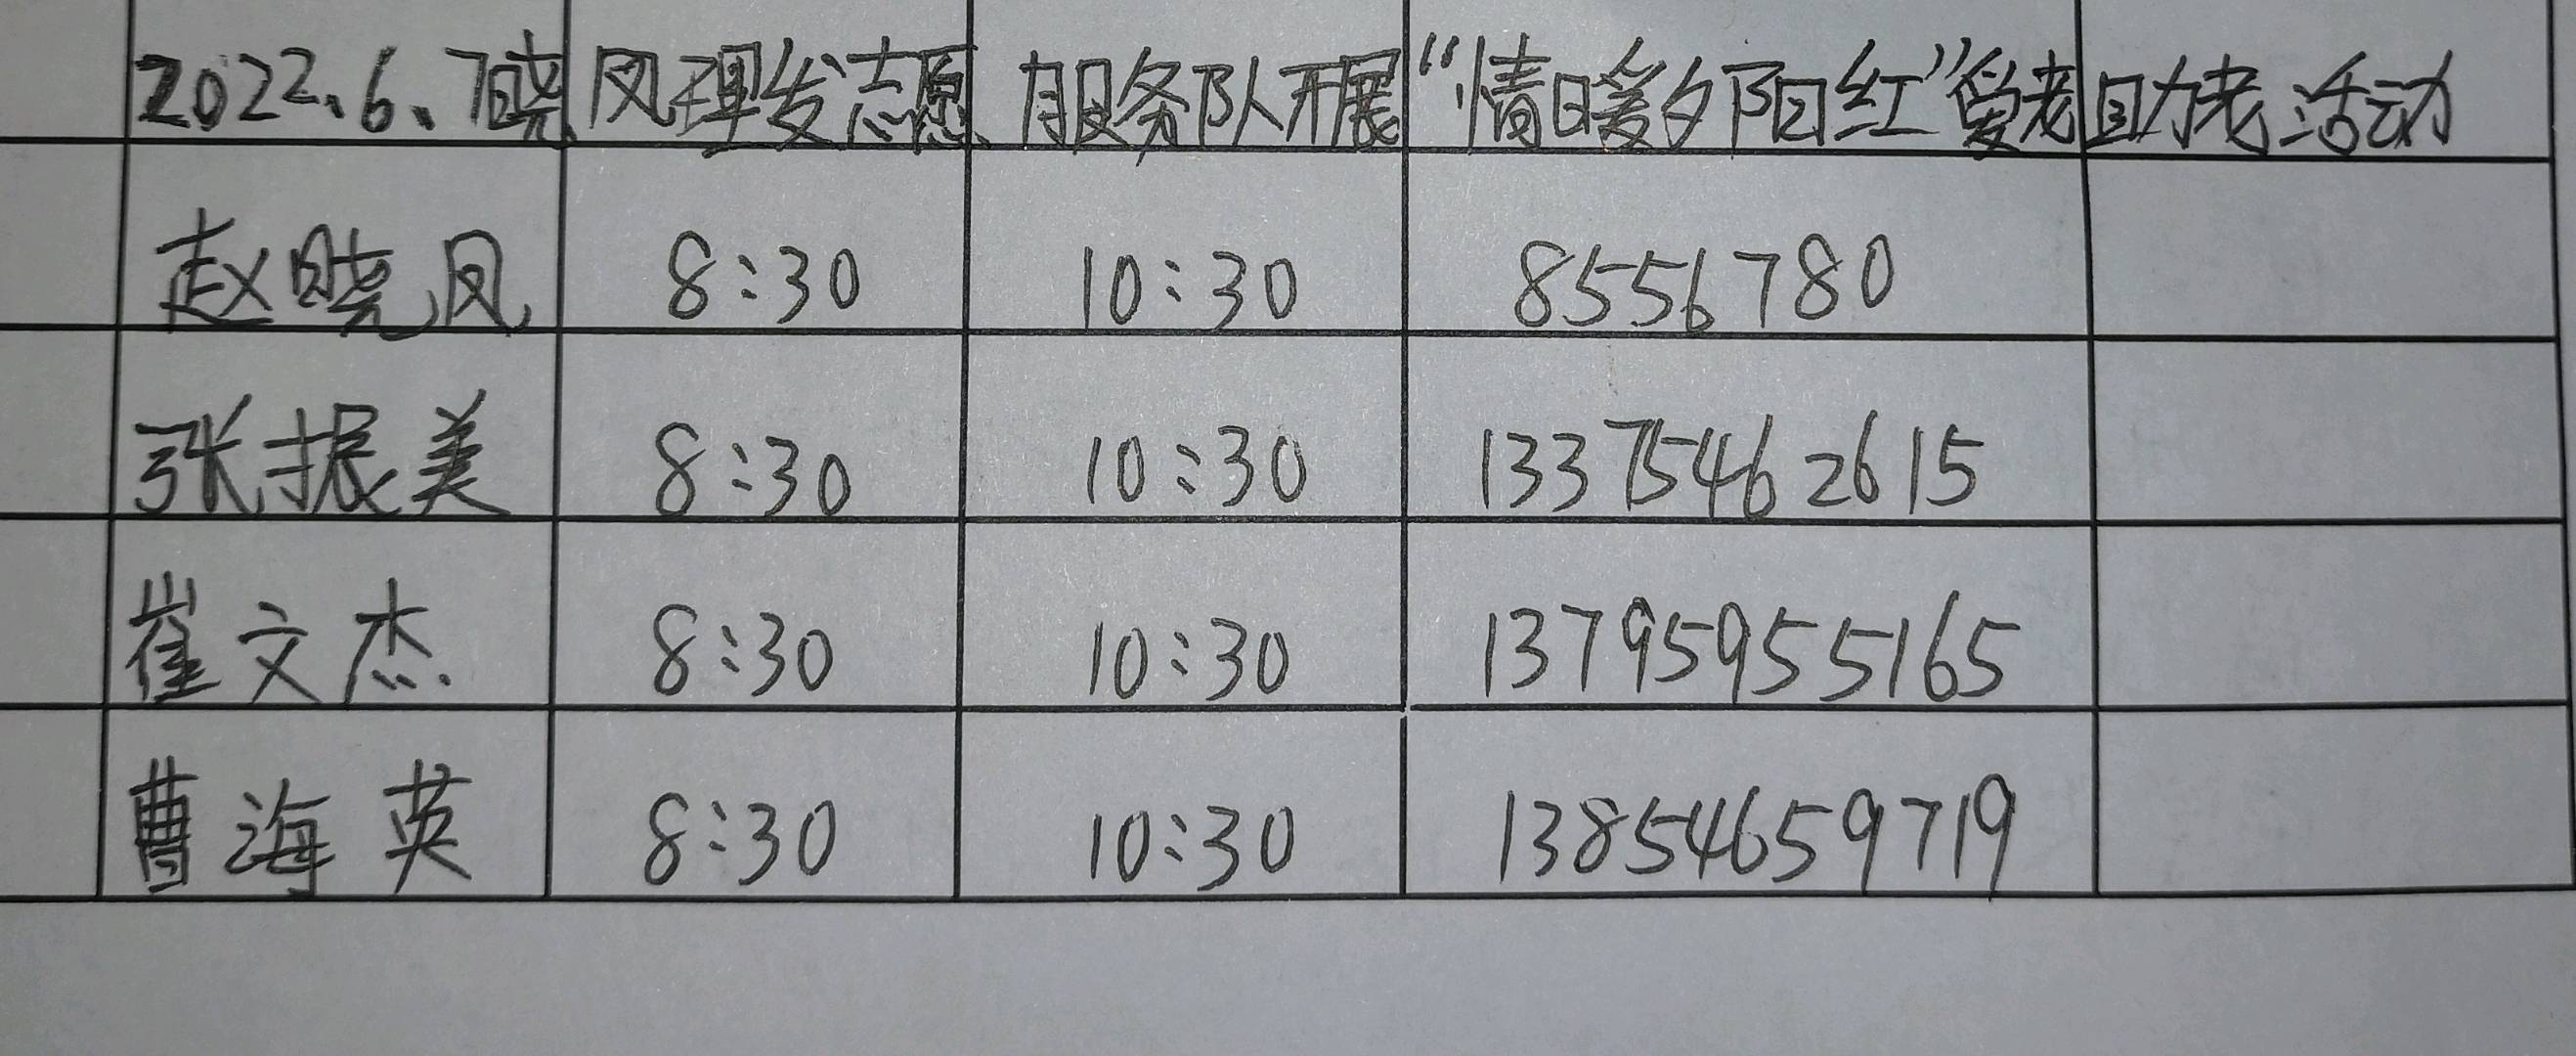 2022.6.7晓凤理发志愿服务队开展“情暖夕阳红”爱老助老活动
赵晓凤 8:30 10:30 8556780
张振美 8:30 10:30 13375462615
崔文杰 8:30 10:30 13795955165
曹海英 8:30 10:30 13854659719